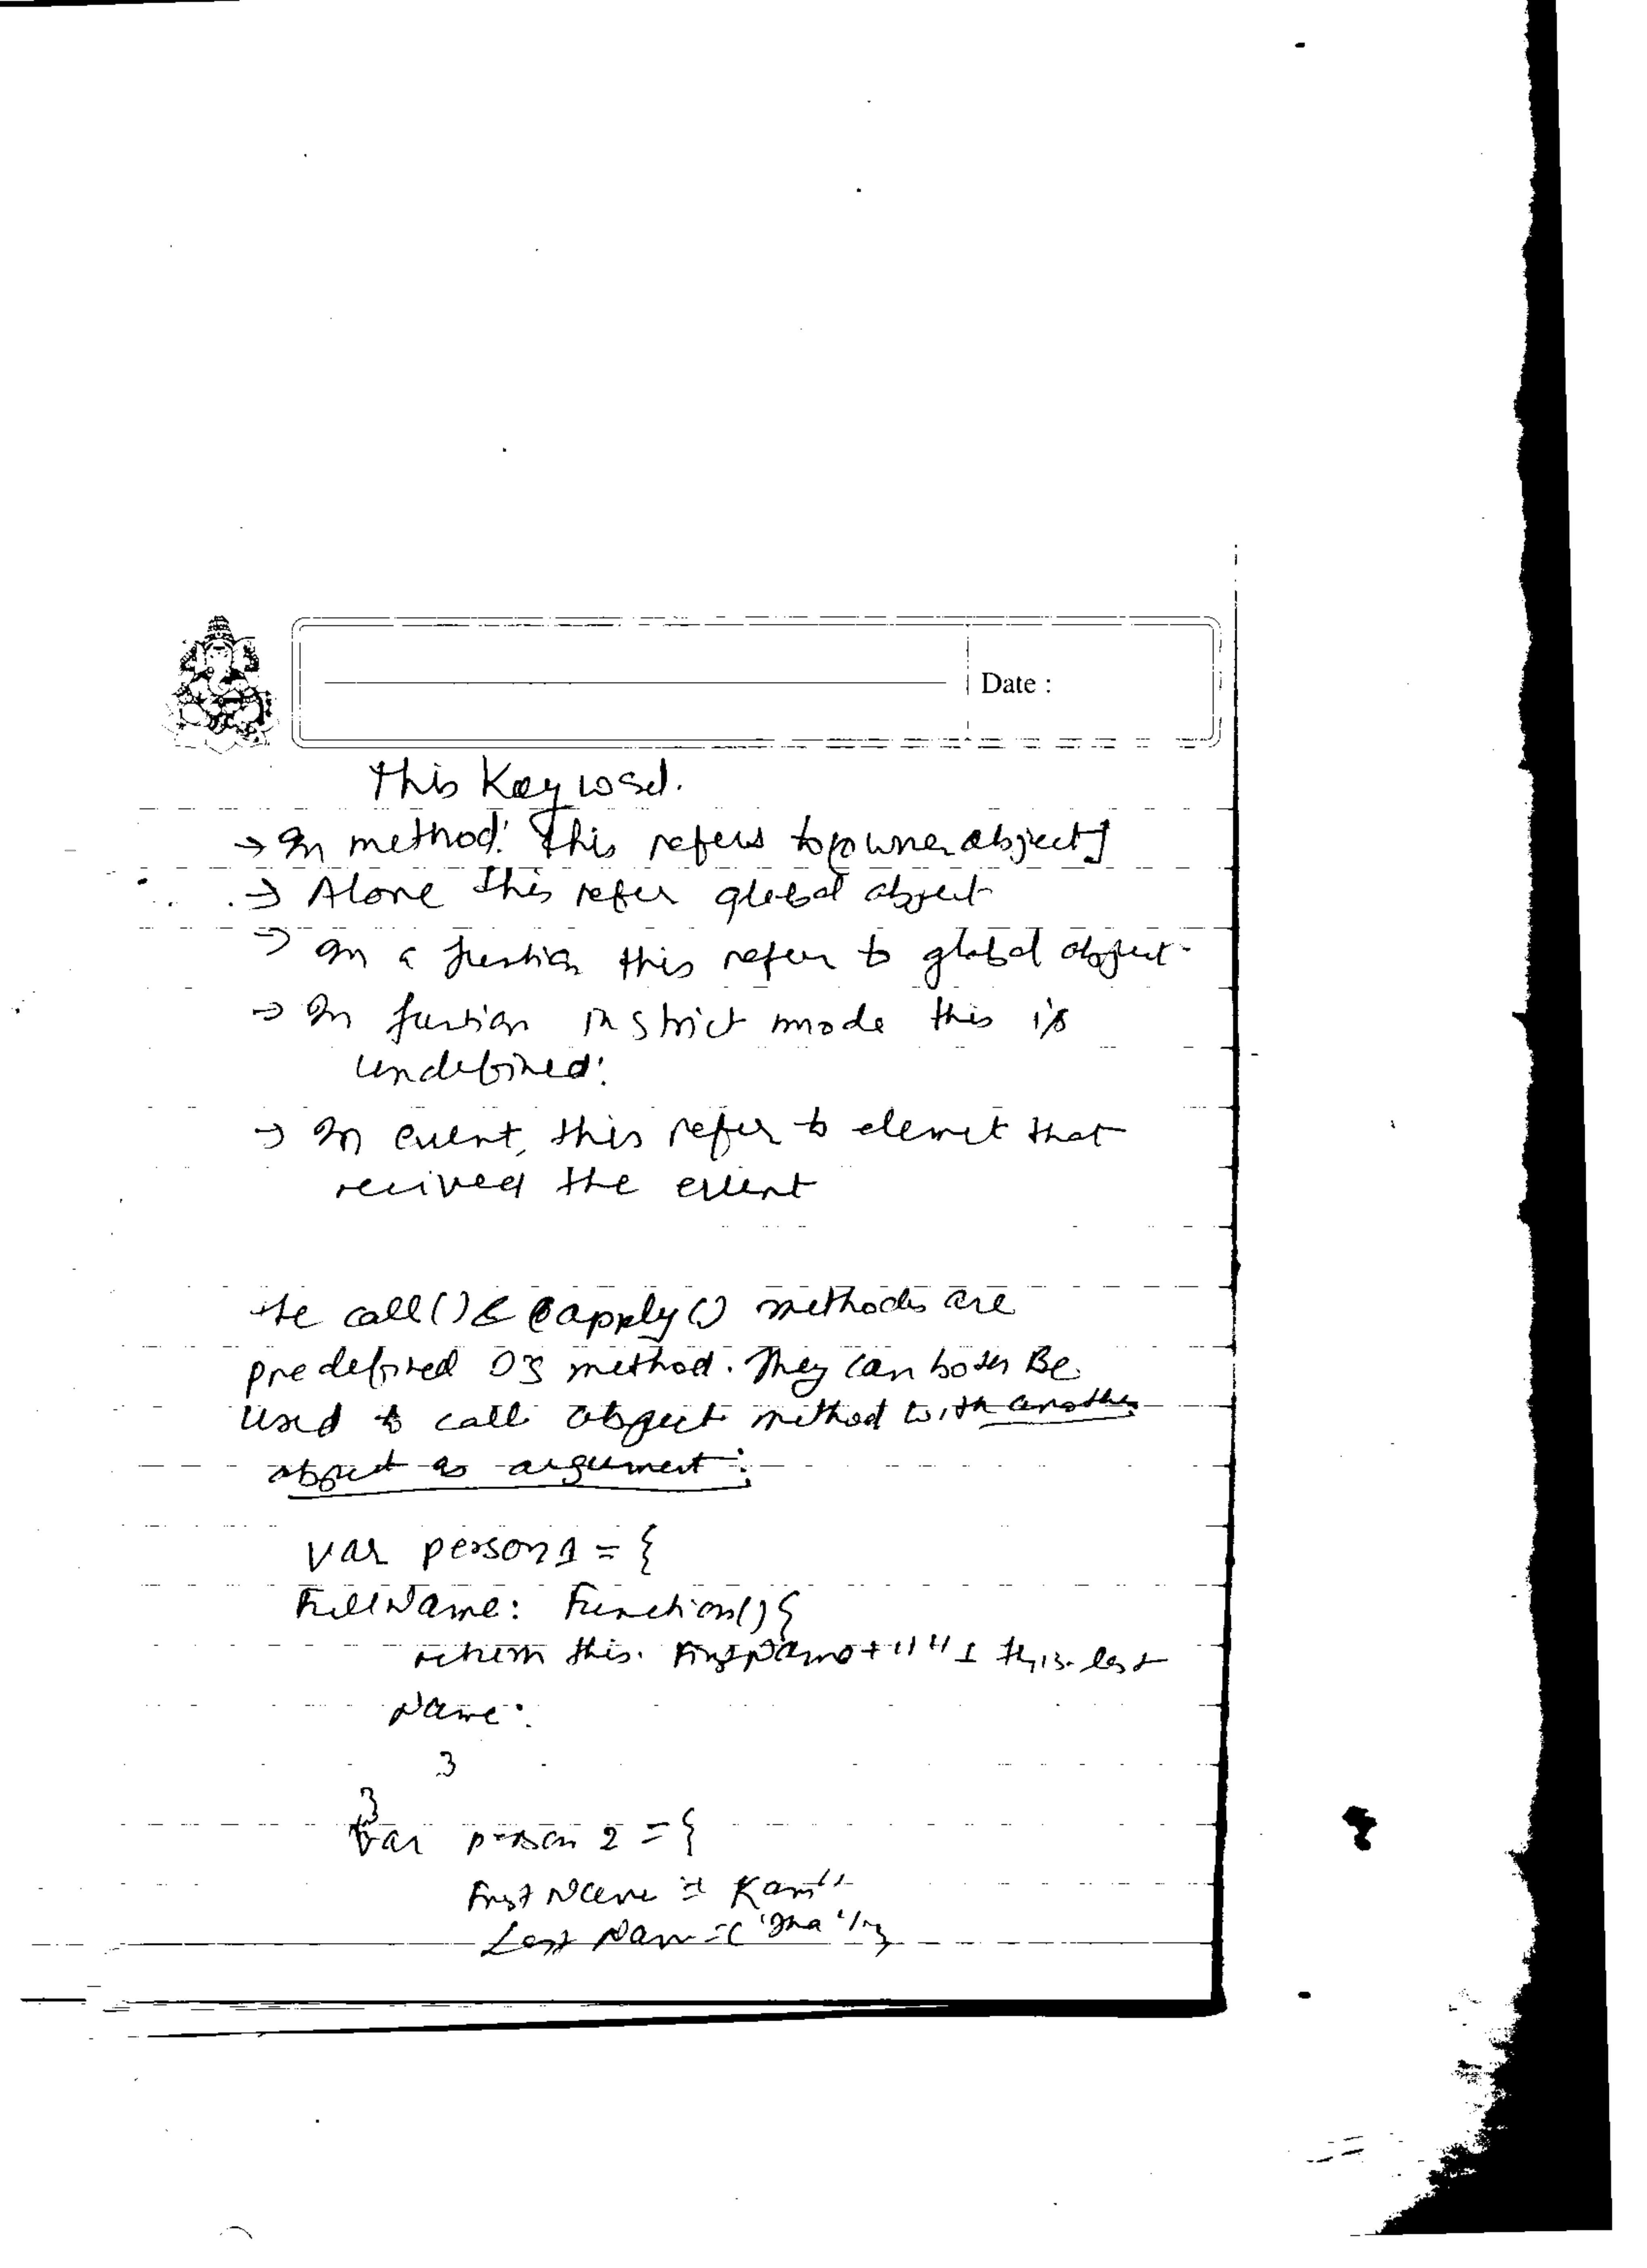 Date :
This Keyword.
→ In method: This refers to [owner object]
→ Alone this refer global object
→ In a function this refer to global object.
→ In function in strict mode this is
undefined.
→ In event, this refer to elemet that
recived the event
the call() & apply() methods are
predefined JS method. They can both Be
used to call object method with another
object as argument:
var person1 = {
FullName: Function() {
return this. FirstName + " " + this. last
Name.
}
}
Var person 2 = {
First Name = Ram"
Last Nam = "Jha" }